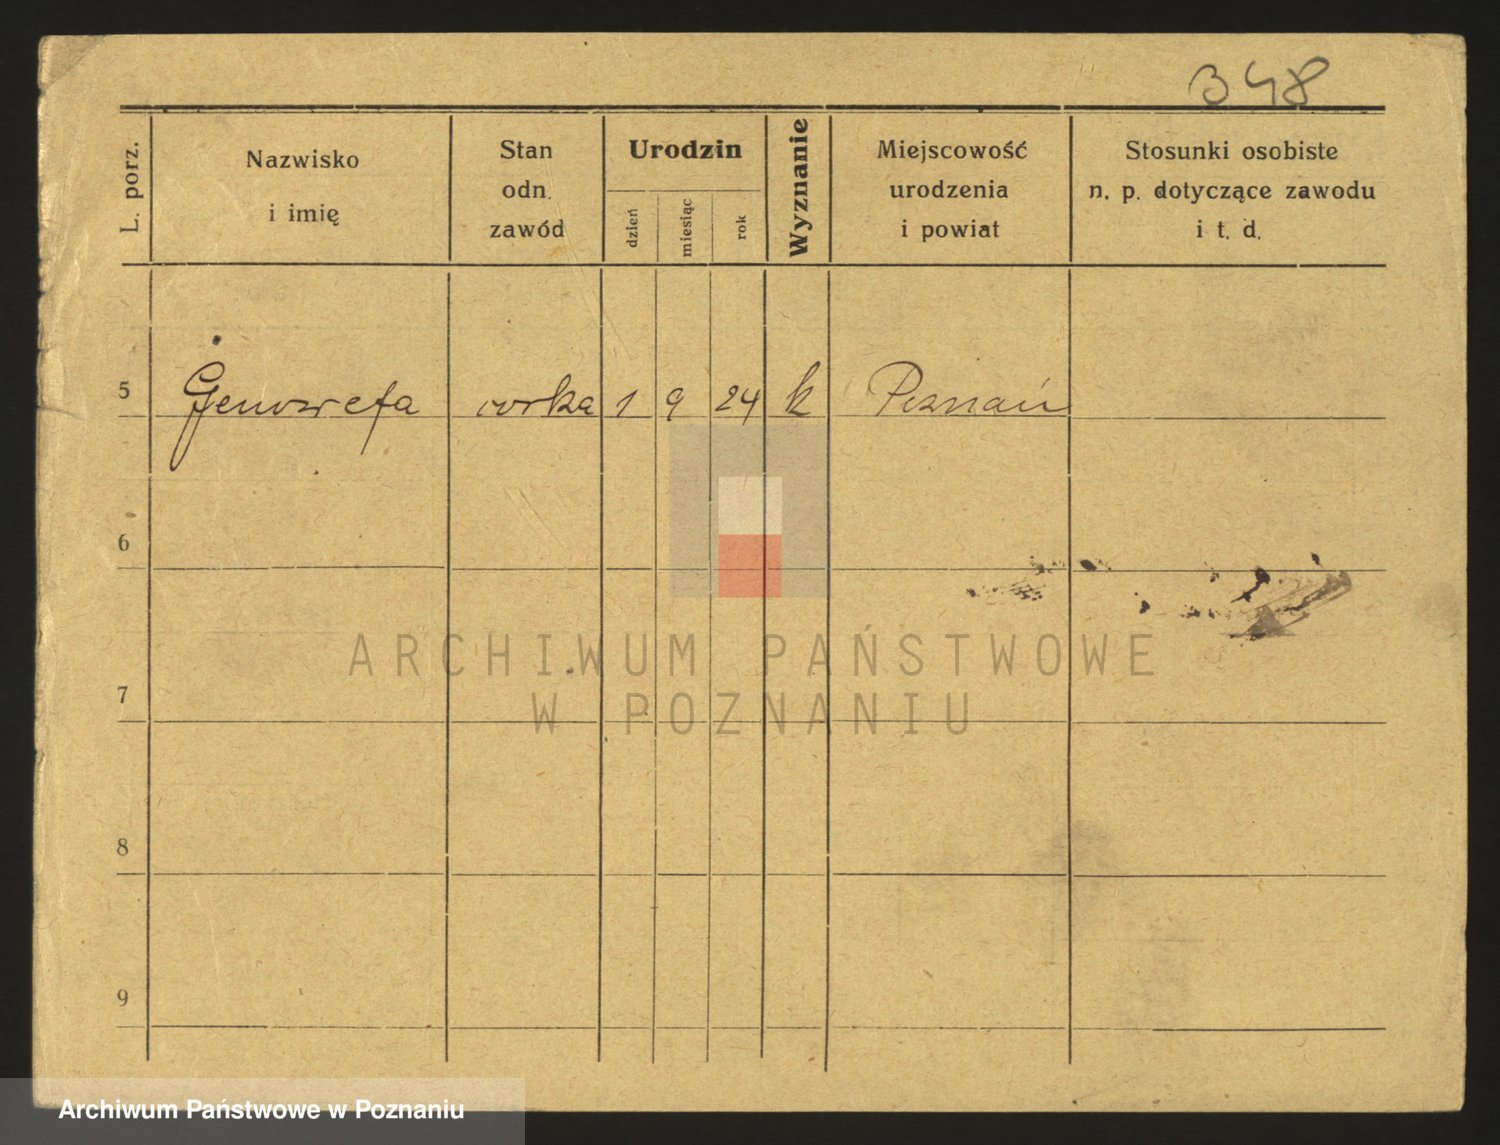 348
L. porz.
Nazwisko
i imię
Stan
odn.
zawód
Urodzin
dzień
miesiąc
rok
Wyznanie
Miejscowość
urodzenia
i powiat
Stosunki osobiste
n. p. dotyczące zawodu
i t. d.
5 Genowefa corka 1 9 24 k Poznań
6
7
8
9
ARCHIWUM PAŃSTWOWE
W POZNANIU
Archiwum Państwowe w Poznaniu